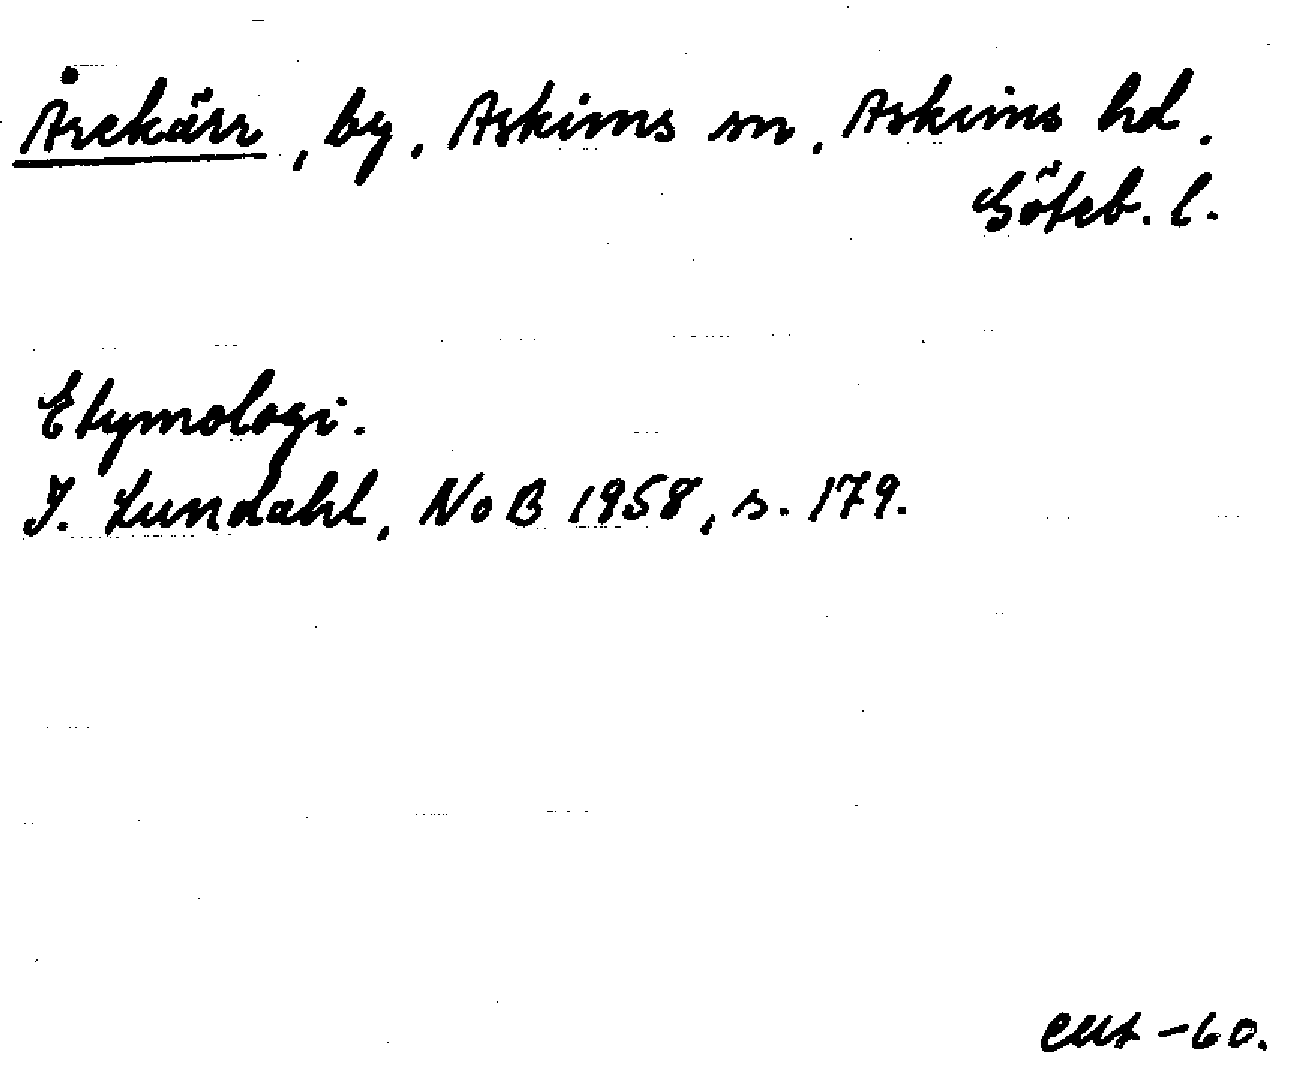 Årekärr, by, Askims sn, Askims hd.
Göteb. l.
Etymologi.
I. Lundahl, NoB 1958, s. 179.
-60.